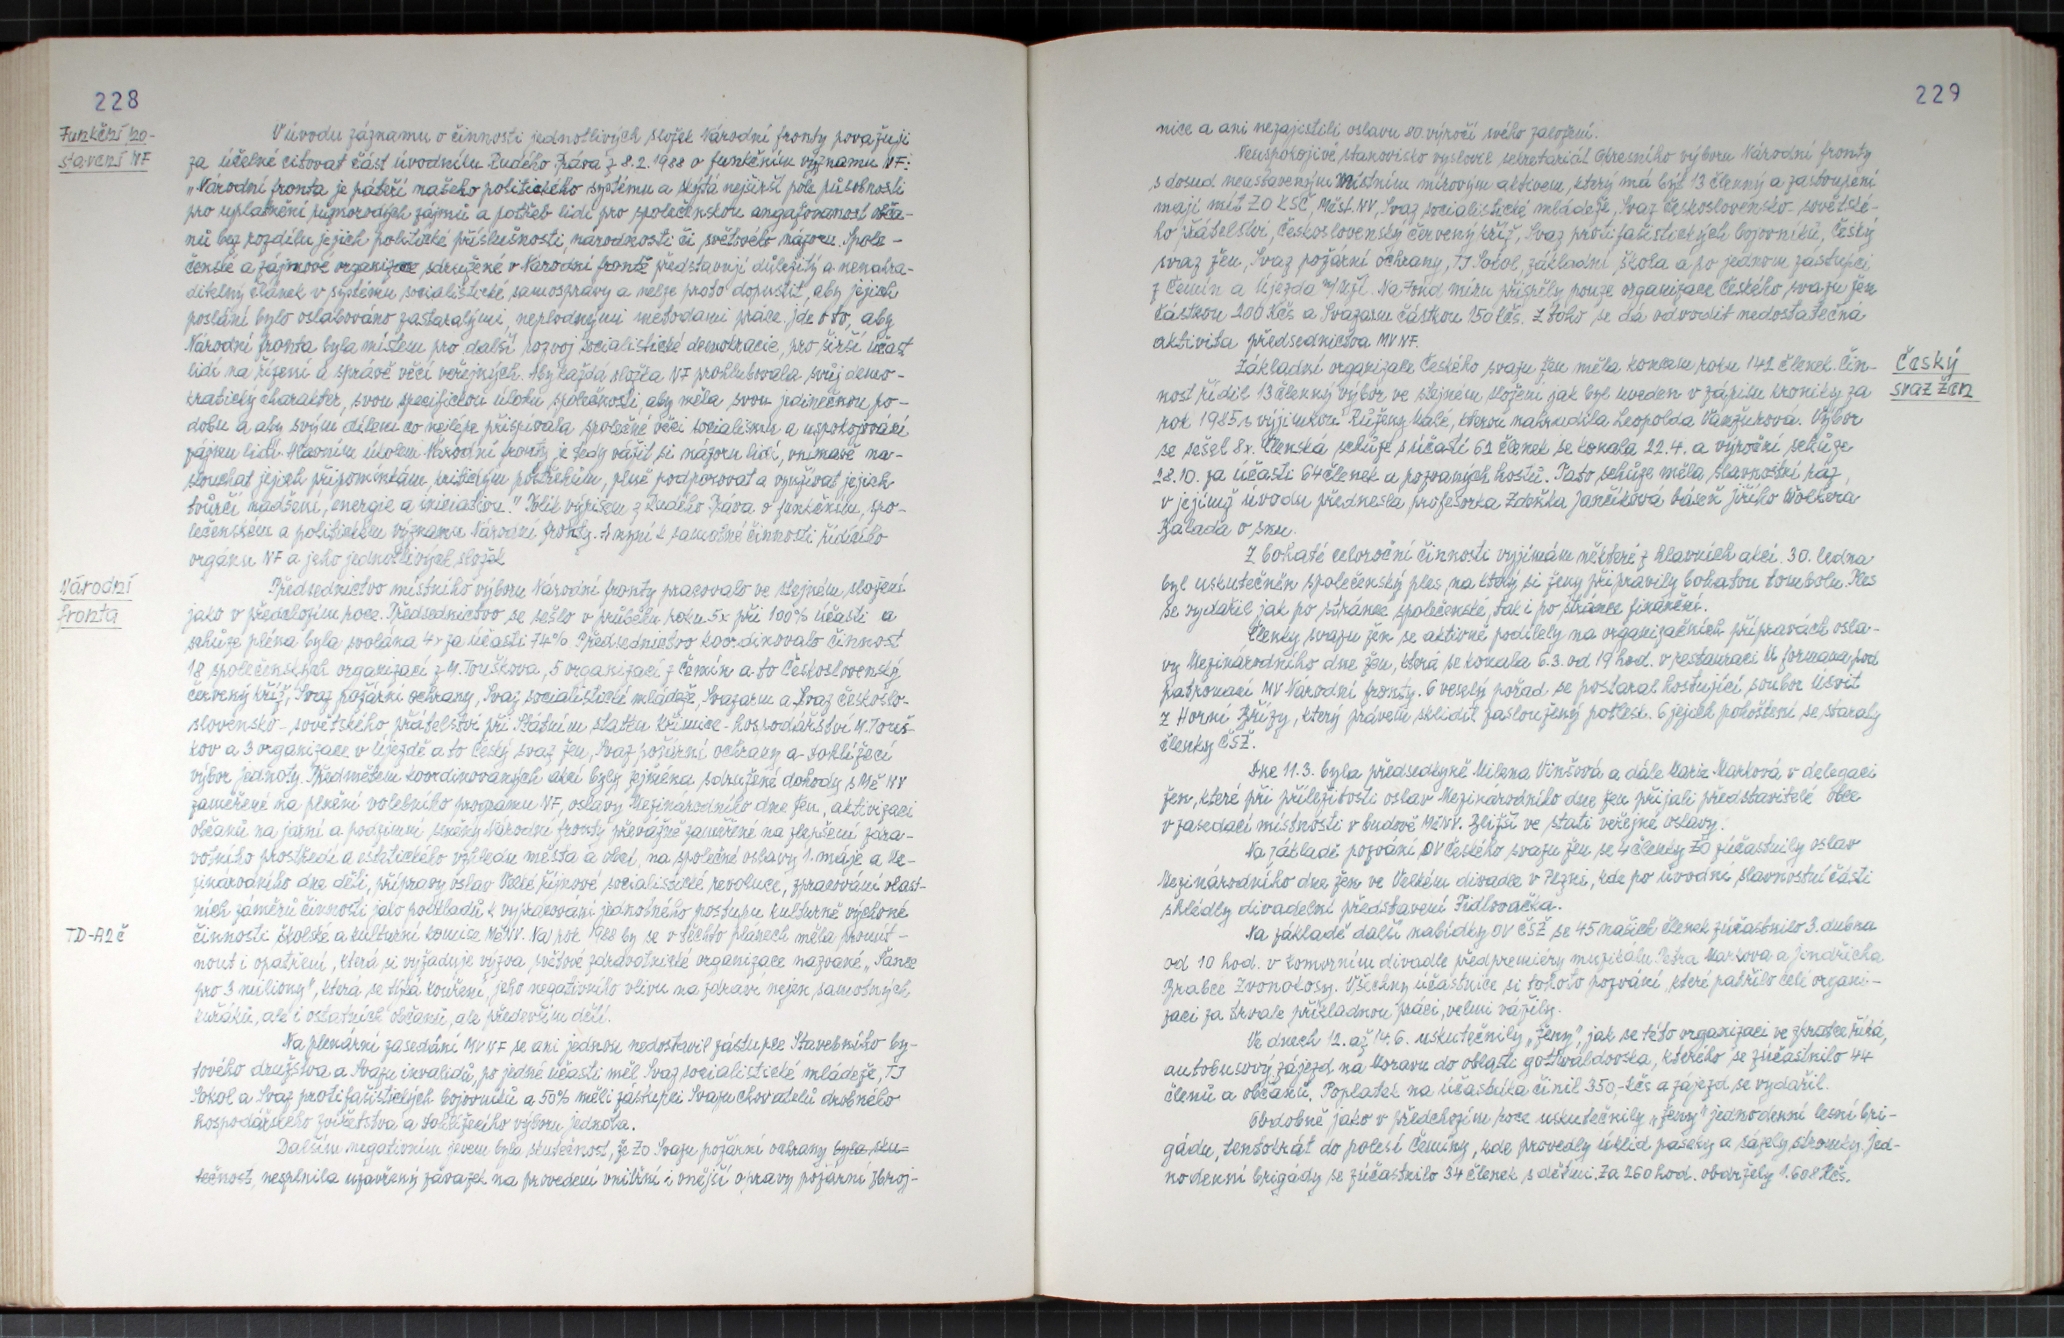 228
Funkční po-
stavení NF
V úvodu záznamu o činnosti jednotlivých složek Národní fronty považuji
za účelné citovat část úvodníku Rudého Práva z 8.2.1988 o funkčním významu NF:
"Národní fronta je páteří našeho politického systému a skýtá nejširší pole působnosti
pro uplatnění různorodých zájmů a potřeb lidí pro společenskou angažovanost obča-
nů bez rozdílu jejich politické příslušnosti, národnosti či světového názoru. Spole-
čenské a zájmové organizace sdružené v Národní frontě představují důležitý a nenahra-
ditelný článek v systému socialistické samosprávy a nelze proto dopustit, aby jejich
poslání bylo oslabováno zastaralými, neplodnými metodami práce. Jde o to, aby
Národní fronta byla místem pro další rozvoj socialistické demokracie, pro širší účast
lidí na řízení a správě věcí veřejných. Aby každá složka NF prohlubovala svůj demo-
kratický charakter, svou specifickou úlohu společnosti, aby měla svou jedinečnou po-
dobu a aby svým dílem co nejlépe přispívala společné věci socialismu a uspokojování
zájmu lidí. Hlavním úkolem Národní fronty je tedy vážit si názoru lidí, vnímavě na-
slouchat jejich připomínkám, kritickým postřehům, plně podporovat a využívat jejich
tvůrčí nadšení, energie a iniciativu." Tolik výpisem z Rudého Práva o funkčním, spo-
lečenském a politickém významu Národní fronty. A nyní k samotné činnosti řídícího
orgánu NF a jeho jednotlivých složek
Národní
fronta
Předsednictvo místního výboru Národní fronty pracovalo ve stejném složení
jako v předchozím roce. Předsednictvo se sešlo v průběhu roku 5x při 100% účasti a
schůze pléna byla svolána 4x za účasti 74%. Předsednictvo koordinovalo činnost
18 společenských organizací z M. Touškova, 5 organizací z Čemín a to Československý
červený kříž, Svaz požární ochrany, Svaz socialistické mládeže, Svazarm a Svaz českoslo-
slovensko-sovětského přátelství při Státním statku Křimice - hospodářství M. Touš-
kov a 3 organizace v Újezdě a to Český svaz žen, Svaz požární ochrany a dohlížecí
výbor jednoty. Předmětem koordinovaných akcí byly zejména sdružené dohody s Mě NV
zaměřené na plnění volebního programu NF, oslavy Mezinárodního dne žen, aktivizaci
občanů na jarní a podzimní směny Národní fronty převážně zaměřené na zlepšení zdra-
votního prostředí a estetického vzhledu města a obcí, na společné oslavy 1. máje a Me-
zinárodního dne dětí, přípravy oslav Velké říjnové socialistické revoluce, zpracování vlast-
ních záměrů činnosti jako podkladů k vypracování jednotného postupu kulturně výchovné
TD-A2č
činnosti školské a kulturní komise MěNV. Na rok 1988 by se v těchto plánech měla promít-
nout i opatření, která si vyžaduje výzva světové zdravotnické organizace nazvané "Šance
pro 3 miliony", která se týká kouření, jeho negativního vlivu na zdraví nejen samotných
kuřáků, ale i ostatních občanů, ale především dětí.
Na plenární zasedání MV NF se ani jednou nedostavil zástupce Stavebního by-
tového družstva a Svazu invalidů, po jedné účasti měl Svaz socialistické mládeže, TJ
Sokol a Svaz protifašistických bojovníků a 50% měli zástupci Svazu chovatelů drobného
hospodářského zvířectva a dohlížecího výboru jednota.
Dalším negativním jevem byla skutečnost, že ZO Svazu požární ochrany byla sku-
tečnost, nesplnila uzavřený závazek na provedení vnitřní i vnější opravy požární zbroj-
229
nice a ani nezajistili oslavu 80. výročí svého založení.
Neuspokojivé stanovisko vyslovil sekretariát Okresního výboru Národní fronty
s dosud neustaveným Místním mírovým aktivem, který má být 13 členný a zastoupení
mají mít ZO KSČ, Měst. NV, Svaz socialistické mládeže, Svaz československo-sovětské-
ho přátelství, Československý červený kříž, Svaz protifašistických bojovníků, Český
svaz žen, Svaz požární ochrany, TJ Sokol, základní škola a po jednom zástupci
z Čemín a Újezda n/Mží. Na Fond míru přispěly pouze organizace Českého svazu žen
částkou 200 Kčs a Svazarm částkou 150 Kčs. Z toho se dá odvodit nedostatečná
aktivita předsednictva MV NF.
Český
svaz žen
Základní organizace Českého svazu žen měla koncem roku 142 členek. Čin-
nost řídil 13 členný výbor ve stejném složení jak byl uveden v zápisu kroniky za
rok 1985 s výjimkou Růženy Malé, kterou nahradila Leopolda Vanžurová. Výbor
se sešel 8x. Členská schůze s účastí 61 členek se konala 22.4. a výroční schůze
28.10. za účasti 64 členek a pozvaných hostů. Tato schůze měla slavnostní ráz,
v jejímž úvodu přednesla profesorka Zdeňka Jančíková báseň Jiřího Wolkera
Balada o snu.
Z bohaté celoroční činnosti vyjímám některé z hlavních akcí. 30. ledna
byl uskutečněn společenský ples, na který si ženy připravily bohatou tombolu. Ples
se vydařil jak po stránce společenské, tak i po stránce finanční.
Členky svazu žen se aktivně podílely na organizačních přípravách osla-
vy Mezinárodního dne žen, která se konala 6.3. od 19 hod. v restauraci U formana pod
patronací MV Národní fronty. O veselý pořad se postaral hostující soubor Úsvit
z Horní Břízy, který právem sklidil zasloužený potlesk. O jejich pohoštění se staraly
členky ČSŽ.
Dne 11.3. byla předsedkyně Milena Vinšová a dále Marie Marková v delegaci
žen, které při příležitosti oslav Mezinárodního dne žen přijali představitelé obce
v zasedací místnosti v budově MěNV. Bližší ve stati veřejné oslavy.
Na základě pozvání OV Českého svazu žen se 4 členky ZO zúčastnily oslav
Mezinárodního dne žen ve Velkém divadle v Plzni, kde po úvodní slavnostní části
shlédly divadelní představení Fidlovačka.
Na základě další nabídky OV ČSŽ se 45 našich členek zúčastnilo 3. dubna
od 10 hod. v komorním divadle předpremiéry muzikálu Petra Markova a Jindřicha
Brabce Zvonokosy. Všechny účastnice si tohoto pozvání, které patřilo celé organi-
zaci za trvale příkladnou práci, velmi vážily.
Ve dnech 12. až 14.6. uskutečnily "ženy", jak se této organizaci ve zkratce říká,
autobusový zájezd na Moravu do oblasti gottwaldovska, kterého se zúčastnilo 44
členů a občanů. Poplatek na účastníka činil 350,-Kčs a zájezd se vydařil.
Obdobně jako v předchozím roce uskutečnily "ženy" jednodenní lesní bri-
gádu, tentokrát do polesí Čemíny, kde provedly úklid paseky a sázely stromky. Jed-
nodenní brigády se zúčastnilo 34 členek s dětmi. Za 260 hod. obdržely 1.608 Kčs.